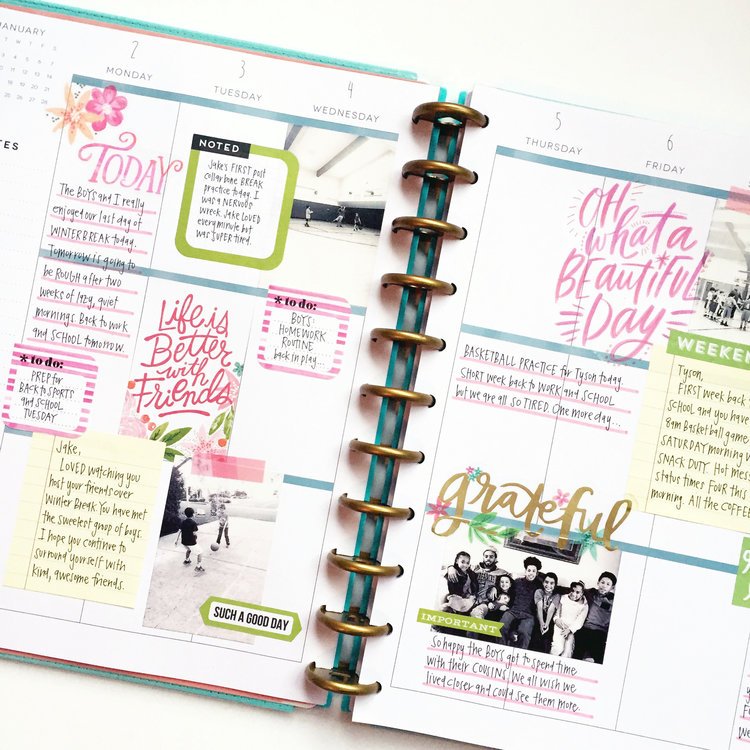 JANUARY
NOTES
2
MONDAY
3
TUESDAY
4
WEDNESDAY
TODAY
The BOYS and I really
enjoyed our last day of
WINTER BREAK today.
Tomorrow is going to
be ROUGH after two
weeks of lazy, quiet
mornings. Back to work
and SCHOOL tomorrow.
* to do:
PREP for
BACK to SPORTS
and SCHOOL
TUESDAY
Jake,
LOVED watching you
host your friends over
Winter Break. You have met
the sweetest group of boys.
I hope you continue to
surround yourself with
kind, awesome friends.
NOTED
Jake's FIRST post
collarbone BREAK
practice today. I
was a NERVOUS
wreck. Jake LOVED
every minute but
was SUPER tired.
Life is
Better
with
Friends
* to do:
BOYS:
HOMEWORK
ROUTINE
back in play...
SUCH A GOOD DAY
5
THURSDAY
6
FRIDAY
OH
what a
BEAUTIFUL
DAY
BASKETBALL PRACTICE for Tyson today.
SHORT week back to WORK and SCHOOL
but we are all SO TIRED. One more day...
grateful
IMPORTANT
So happy the BOYS got to spend time
with their COUSINS. We all wish we
lived closer and could see them more.
WEEKEN
Tyson,
FIRST week back
SCHOOL and you have
8am Basketball game
SATURDAY morning w
SNACK DUTY. Hot mess
status times FOUR this
morning. All the COFFEE